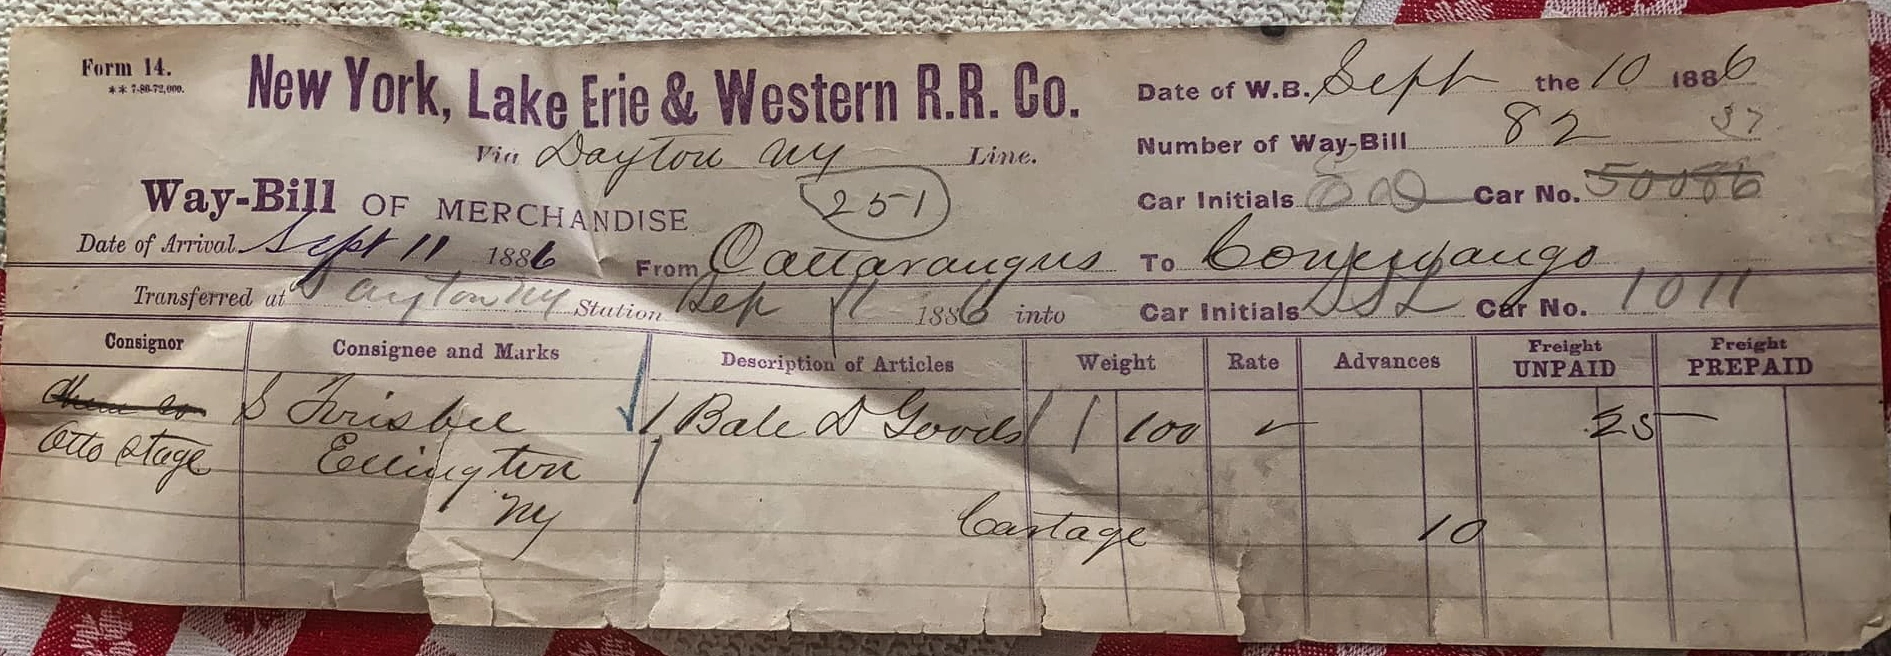 Form 14.
** 7-80-72,000.
New York, Lake Erie & Western R.R. Co.
Via Dayton NY Line.
Way-Bill OF MERCHANDISE
251
Date of W.B. Sept the 10 1886
Number of Way-Bill 82 37
Car Initials Car No. 50086
Date of Arrival Sept 11 1886 From Cattaraugus To Conewango
Transferred at Dayton NY Station Sep 11 1886 into Car Initials Car No. 1011
Consignor Consignee and Marks Description of Articles Weight Rate Advances Freight UNPAID Freight PREPAID
S Frisbee 1 Bale D Goods 1 100 25
Otto Stage Ellington
NY Cartage 10